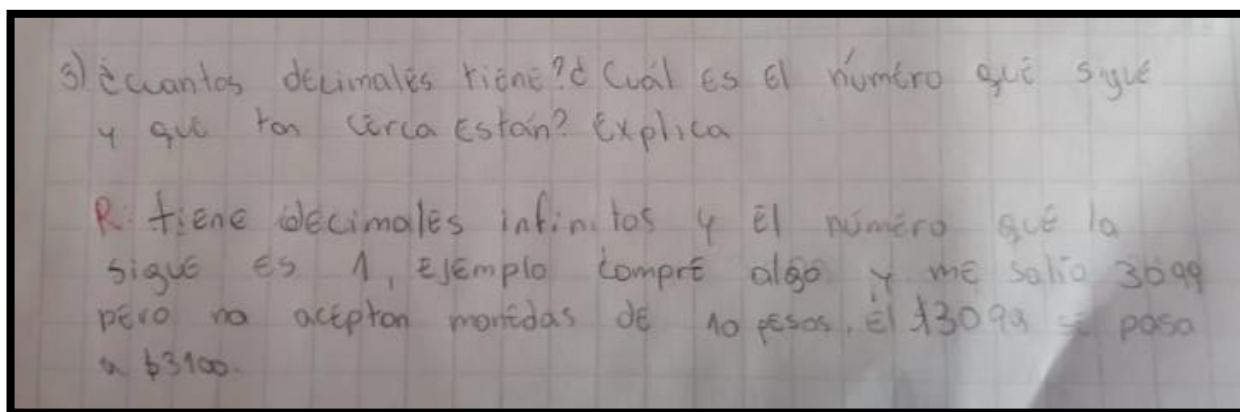 3) ¿Cuantos decimales tiene? ¿Cuál es el número que sigue
y que tan cerca están? Explica
R: tiene decimales infinitos y el número que la
sigue es 1, Ejemplo compré algo y me salio 3099
pero no aceptan monedas de 10 pesos, el $3099 se pasa
a $3100.